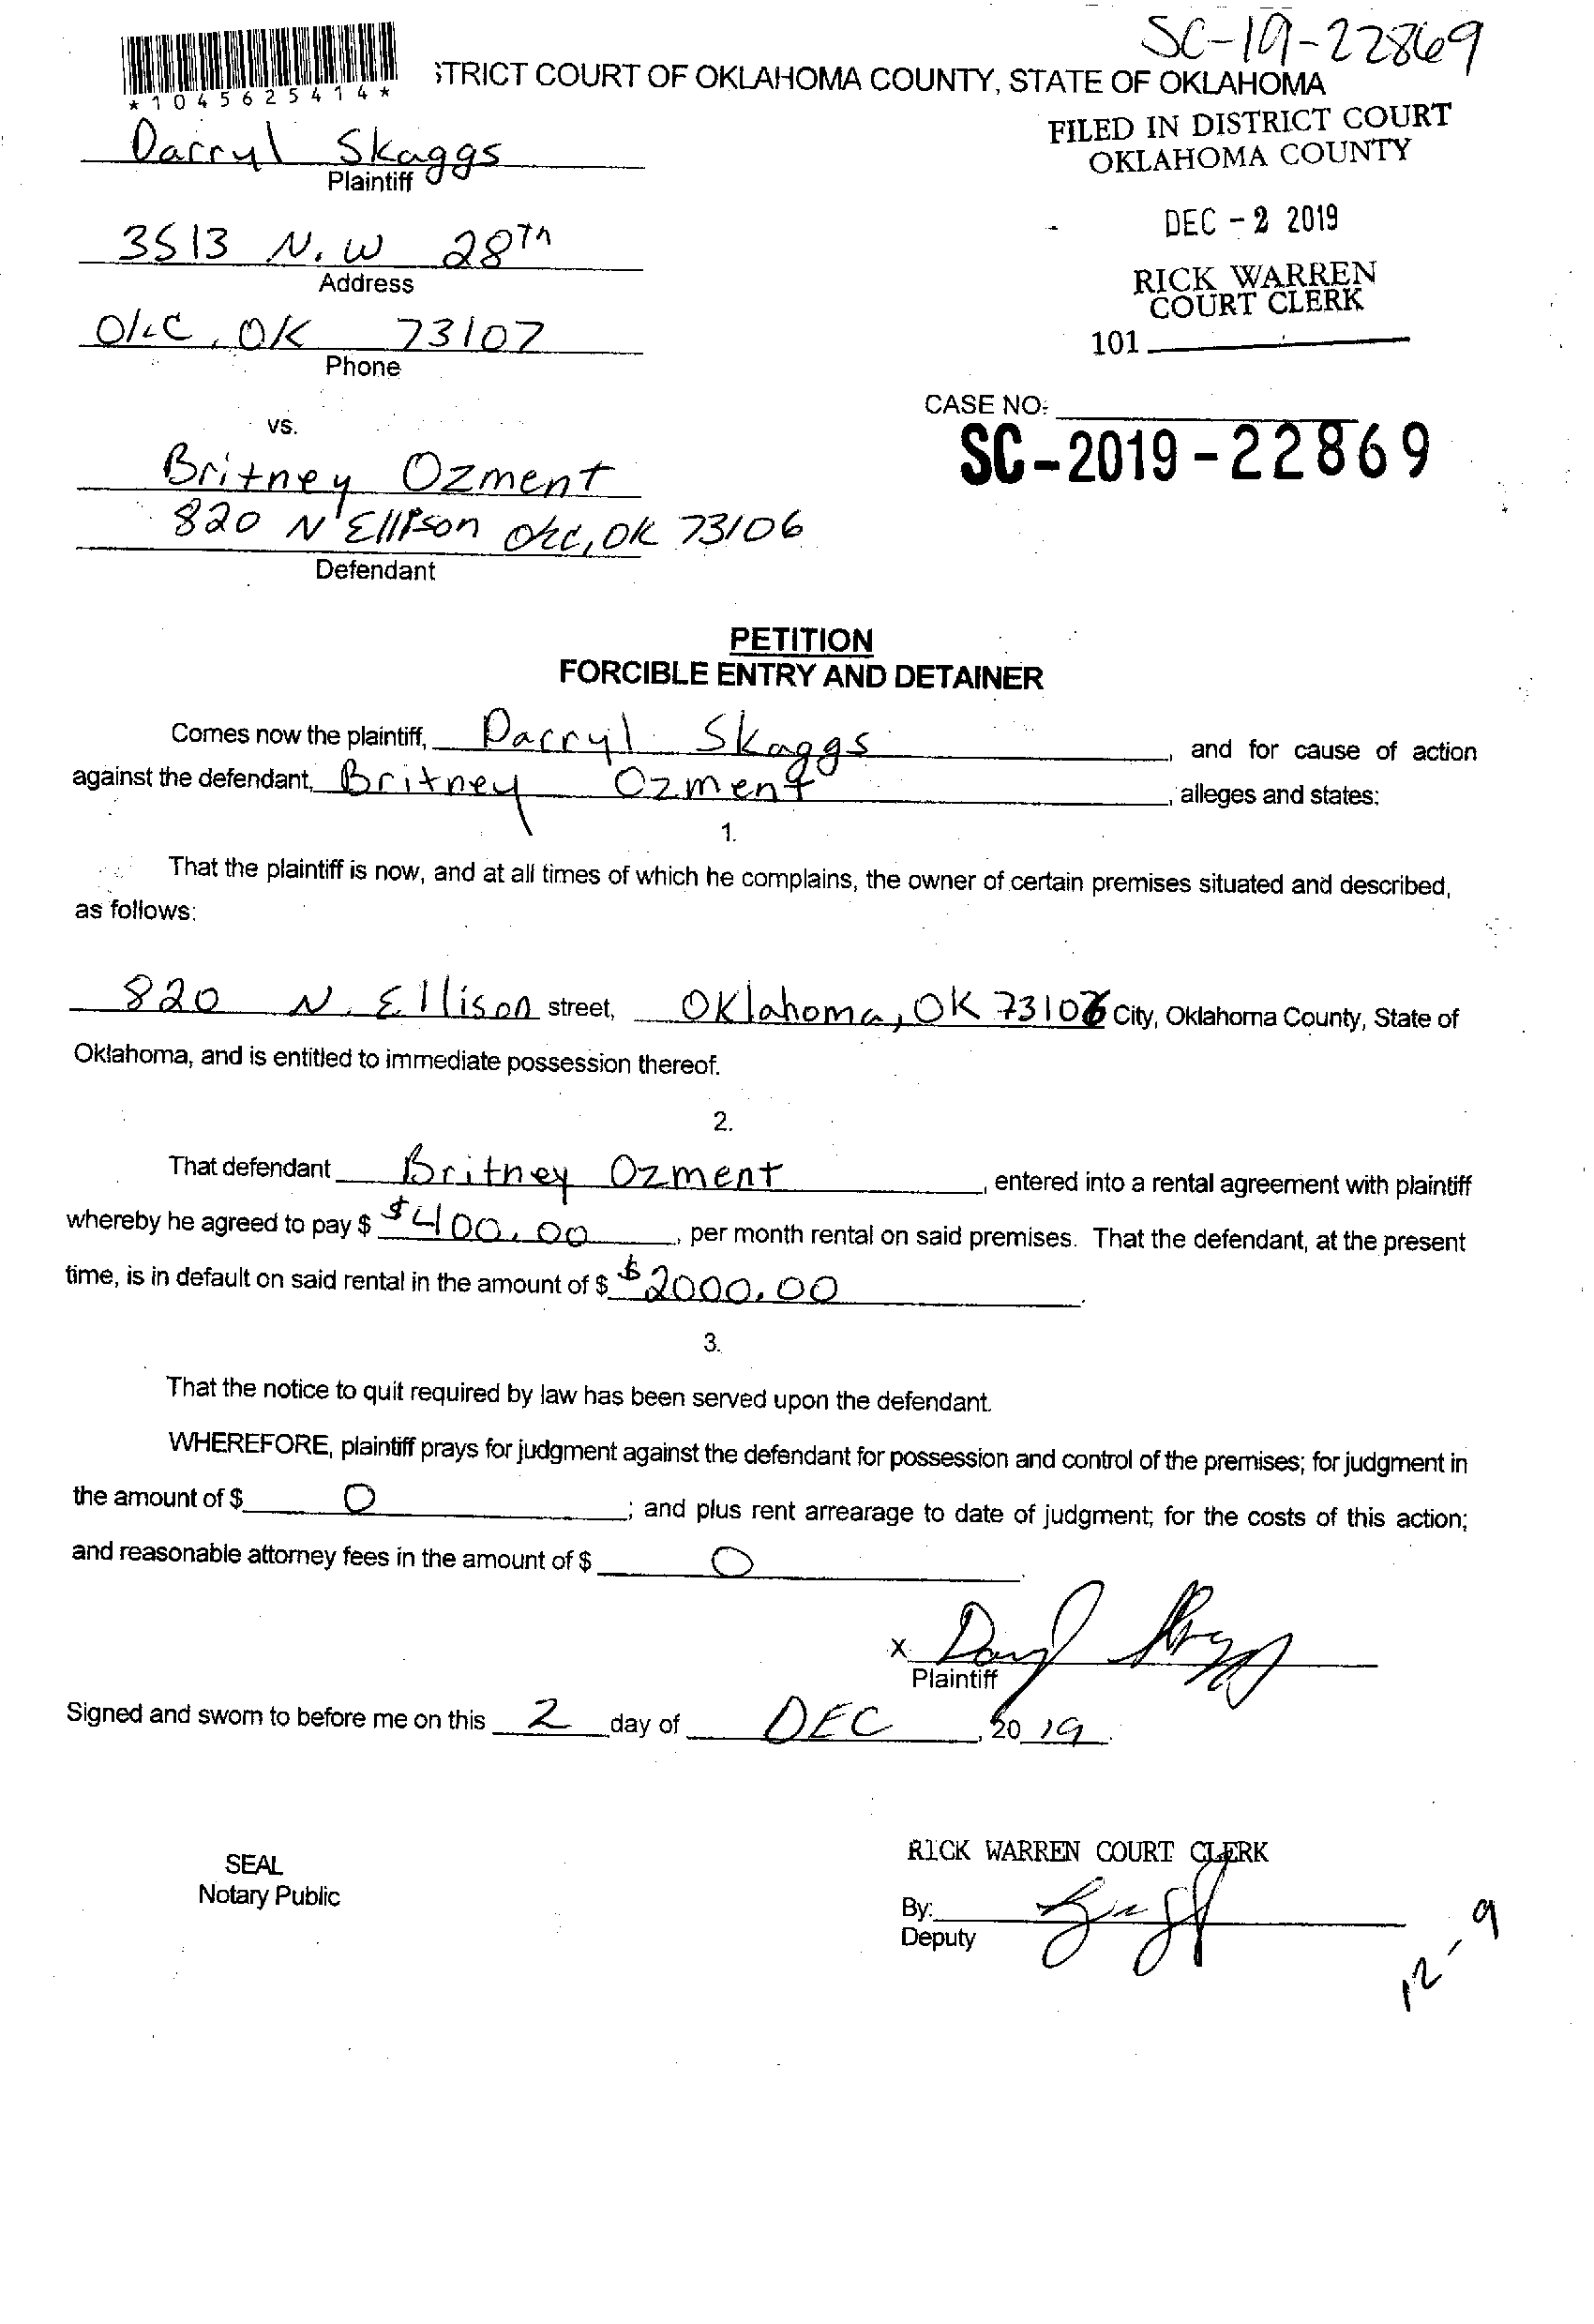 SC-19-22869
STRICT COURT OF OKLAHOMA COUNTY, STATE OF OKLAHOMA
*1045625414*
FILED IN DISTRICT COURT
OKLAHOMA COUNTY
Darryl Skaggs
Plaintiff
DEC - 2 2019
3513 N. W 28Th
Address
RICK WARREN
COURT CLERK
OKC, OK 73107
Phone
101
CASE NO:
SC-2019-22869
vs.
Britney Ozment
820 N Ellison OKC, OK 73106
Defendant
PETITION
FORCIBLE ENTRY AND DETAINER
Comes now the plaintiff, Darryl Skaggs, and for cause of action
against the defendant, Britney Ozment, alleges and states:
1.
That the plaintiff is now, and at all times of which he complains, the owner of certain premises situated and described,
as follows:
820 N. Ellison street, Oklahoma, OK 73106 City, Oklahoma County, State of
Oklahoma, and is entitled to immediate possession thereof.
2.
That defendant Britney Ozment, entered into a rental agreement with plaintiff
whereby he agreed to pay $ $400.00, per month rental on said premises. That the defendant, at the present
time, is in default on said rental in the amount of $ $2000.00.
3.
That the notice to quit required by law has been served upon the defendant.
WHEREFORE, plaintiff prays for judgment against the defendant for possession and control of the premises; for judgment in
the amount of $ 0; and plus rent arrearage to date of judgment; for the costs of this action;
and reasonable attorney fees in the amount of $ 0.
X Darryl Skaggs
Plaintiff
Signed and sworn to before me on this 2 day of DEC, 2019.
RICK WARREN COURT CLERK
SEAL
Notary Public
By:
Deputy
12-9